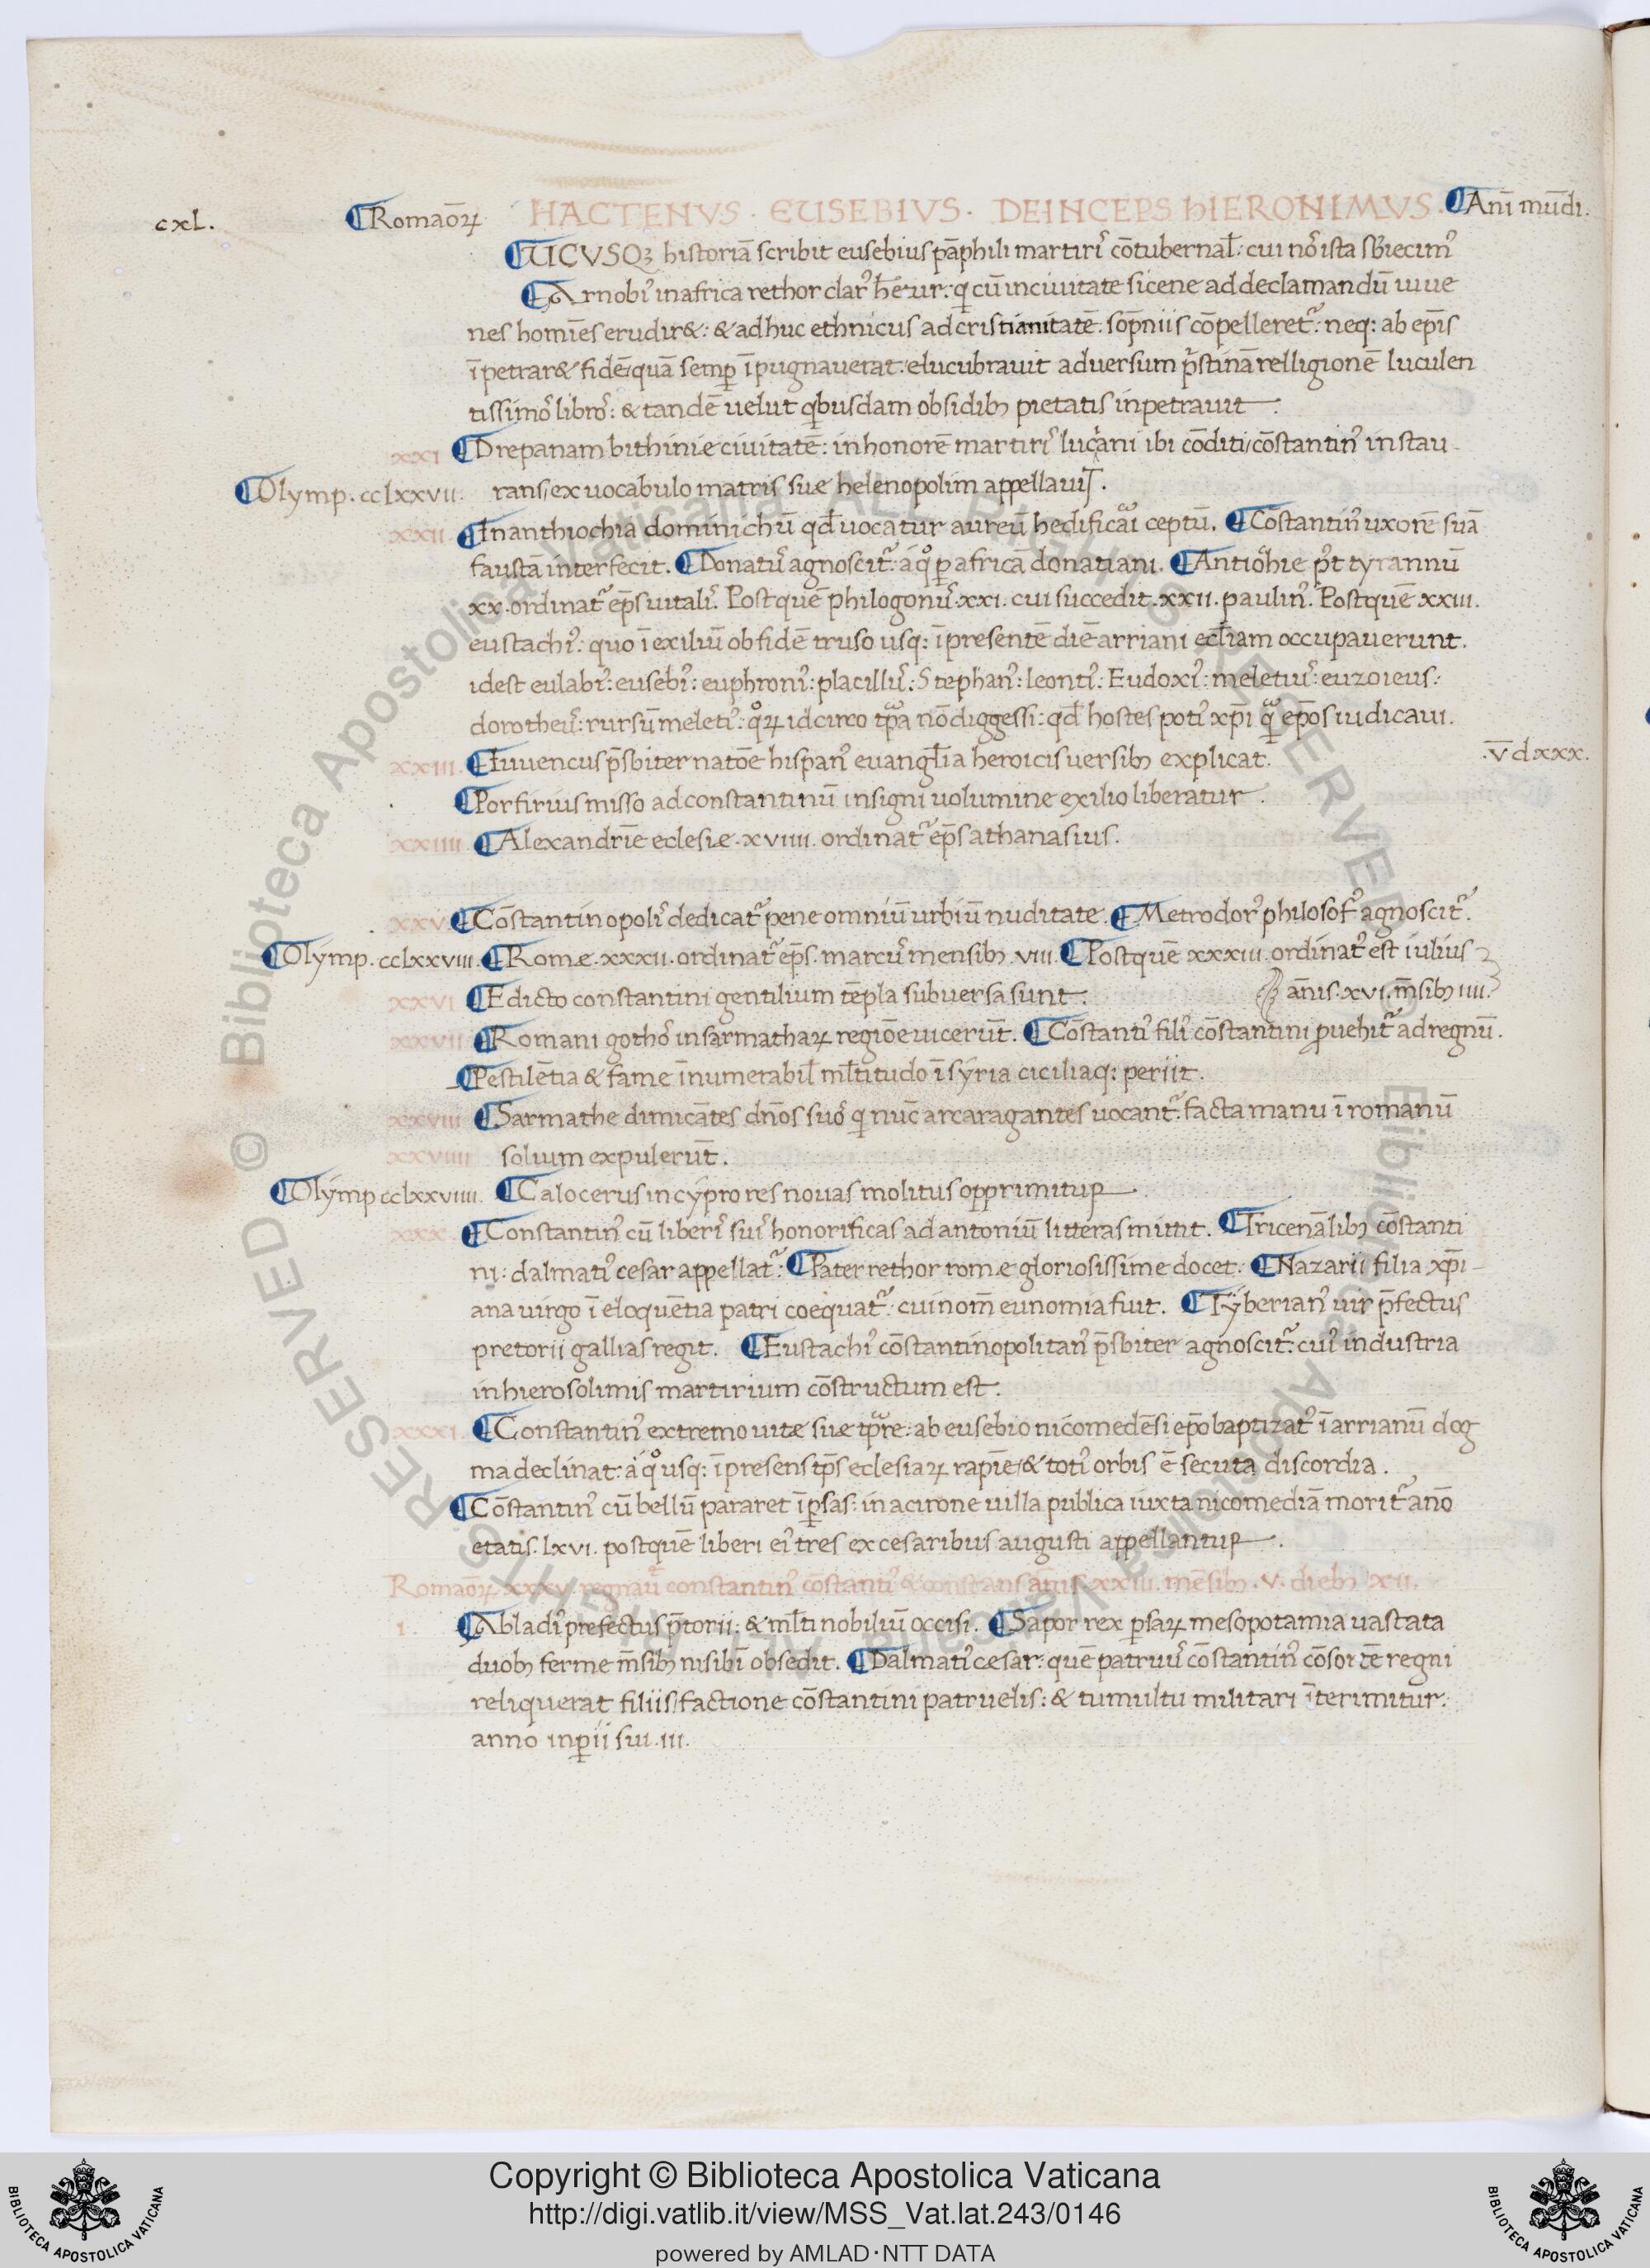 cxl. ¶Romaōꝝ HACTENVS · EUSEBIVS · DEINCEPS hIERONIMVS · ¶Ani̅ mūdi.
¶UICVSQꝫ historiā scribit eusebius pāphili martirꝰ cōtubernaƚ: cui nꝰo ista sƀiecimꝰ
¶Arnobiꝰ in africa rethor clarꝰ ħetur: q̄ cū in ciuitate sicene ad declamandū iuue
nes homīes erudir&: & adhuc ethnicus ad cristianitatē: sop̄niis cōpelleret᷑: neq: ab ep̄is
īpetrar& fidē/ quā semꝑ īpugnauerat: elucubrauit aduersum p̄stinā relligionē luculen
tissimoꝰ libroꝰ: & tandē uelut qbusdam obsidibꝫ pietatis inpetrauit.
xxi ¶Drepanam bithinie ciuitatē: in honorē martirꝰ luciani ibi cōditi/ cōstantinꝰ instau-
¶Olymp. cclxxvii. rans/ ex uocabulo matris sue helenopolim appellauiT.
xxii ¶In anthiochia dominichū qđ uocatur aureū hedificāi ceptū. ¶Cōstantinꝰ uxorē suā
faustā interfecit. ¶Donatꝰ agnoscit᷑: a qͦ ꝑ africā donatiani. ¶Antiohie p̄t tyrannū
xx. ordinat᷑ ep̄s uitalꝰ. Post quē philogonꝰ. xxi. cui succedit. xxii. paulinꝰ. Post quē xxiii.
eustachiꝰ: quo ī exiliū ob fidē truso usq: ī presentē diē arriani ecƚiam occupauerunt.
idest eulabiꝰ: eusebiꝰ: euphroniꝰ: placillꝰ: Stephanꝰ: leontiꝰ: Eudoxiꝰ: meletiuꝰ: euzoieus:
dorotheꝰ: rursū meletiꝰ: qͦꝝ idcirco tp̄a nō diggessi: qđ hostes potiꝰ xp̄i q̄ ep̄os iudicaui.
xxiii. ¶Iuuencus p̄sbiter natōe hispanꝰ euangƚia heroicis uersibꝫ explicat. .v̄dxxx.
¶Porfirius misso ad constantinū insigni uolumine exilio liberatur.
xxiiii ¶Alexandrīe eclesiæ. xviiii. ordinat᷑ ep̄s athanasius.
xxv ¶Cōstantinopolꝰ dedicat᷑ pene omniū urbiū nuditate. ¶Metrodorꝰ philosofꝰ agnoscit᷑.
¶Olymp. cclxxviii. ¶Romæ. xxxii. ordinat᷑ ep̄s. marcꝰ mensibꝫ. viii. ¶Post quē xxxiii. ordinatꝰ est iulius
xxvi ¶Edicto constantini gentilium tēpla subuersa sunt. an̄is. xvi. m̄sibꝫ iiii.
xxvii ¶Romani gothoꝰ in sarmathaꝝ regiōe uicerūt. ¶Cōstantiꝰ filiꝰ cōstantini ꝓuehit᷑ ad regnū.
¶Pestilētia & fame īnumerabiƚ mƚtitudo ī syria ciciliaq: periit.
xxviii ¶Sarmathe dimicātes dn̄os suoꝰ q̄ nūc arcaragantes uocant᷑: facta manu ī romanū
xxviiii solium expulerūt.
¶Olymp cclxxviiii. ¶Calocerus in cypro res nouas molitus opprimitur
xxx ¶Constantinꝰ cū liberꝰ suꝰ honorificas ad antoniū litteras mittit. ¶Tricenālibꝫ cōstanti
ni: dalmatiꝰ cesar appellat᷑: ¶Pater rethor romæ gloriosissime docet. ¶Nazarii filia xp̄i-
ana uirgo ī eloquētia patri coequat᷑: cui nom̄ eunomia fuit. ¶Tyberianꝰ uir p̄fectus
pretorii gallias regit. ¶Eustachiꝰ cōstantinopolitanꝰ p̄sbiter agnoscit᷑: cuiꝰ industria
in hierosolimis martirium cōstructum est.
xxxi ¶Constantinꝰ extremo uitæ suæ tp̄re: ab eusebio nicomedēsi ep̄o baptizatꝰ ī arrianū dog
ma declinat: a qͦ usq: ī presens tp̄s eclesiaꝝ rapīe/ & totiꝰ orbis ē secuta discordia.
¶Cōstantinꝰ cū bellū pararet ī ꝑsas: in acirone uilla publica iuxta nicomediā morit᷑ anō
etatis. lxvi. post quē liberi eiꝰ tres ex cesaribus augusti appellantur.
Romaōꝝ xxxv. regnauē constantinꝰ cōstantiꝰ & constans an̄is xxiii. mēsibꝫ. v. diebꝫ xii.
i. ¶Abladiꝰ prefectus p̄torii: & mƚti nobiliū occisi. ¶Sapor rex ꝑsaꝝ mesopotamia uastata
duobꝫ ferme m̄sibꝫ nisibī obsedit. ¶Dalmatiꝰ cesar: quē patruꝰ cōstantinꝰ cōsortē regni
reliquerat filiis/ factione cōstantini patruelis: & tumultu militari īterimitur:
anno inꝑii sui. iii.
Copyright © Biblioteca Apostolica Vaticana
http://digi.vatlib.it/view/MSS_Vat.lat.243/0146
powered by AMLAD · NTT DATA
BIBLIOTECA APOSTOLICA VATICANA
BIBLIOTECA APOSTOLICA VATICANA